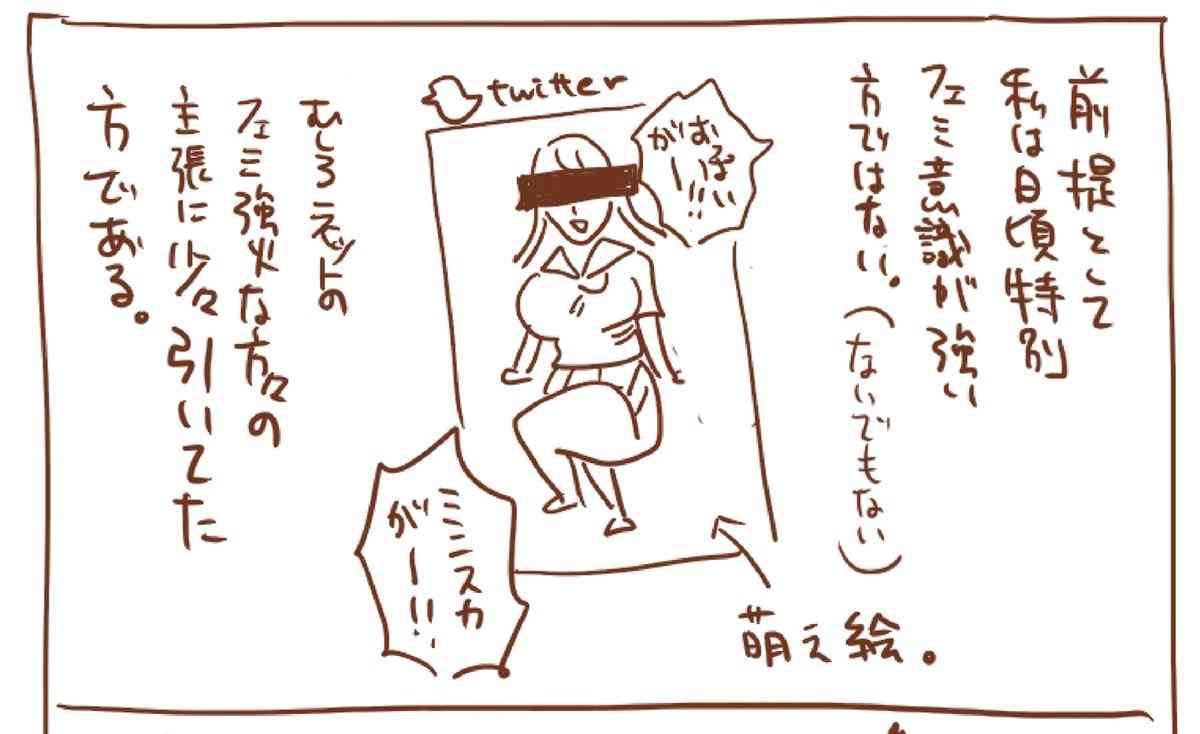 前提として
私は日頃特別
フェミ意識が強い
方ではない。
(ないでもない)
おぱい
がー!!
twitter
萌え絵。
ミニスカ
がー!!
むしろネットの
フェミ強火な方々の
主張に少々引いてた
方である。